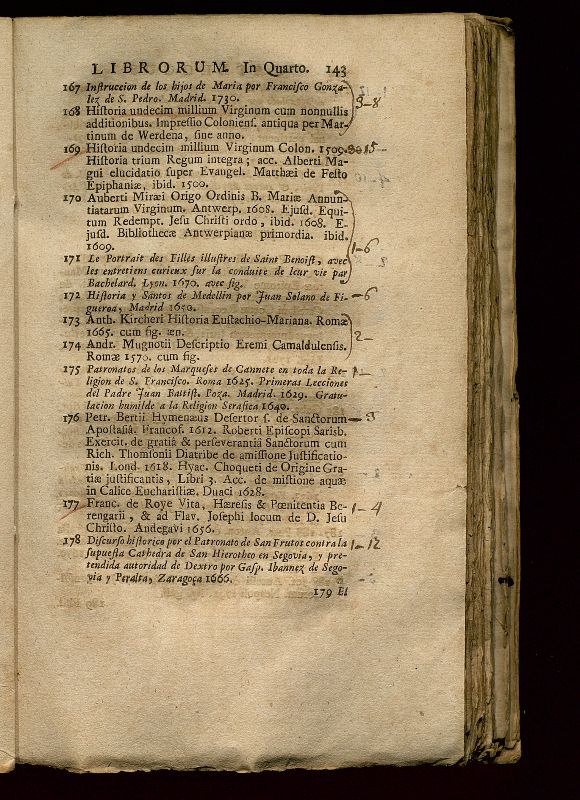 LIBRORUM. In Quarto. 143
167 Instruccion de los hijos de Maria por Francisco Gonza-
lez de S. Pedro. Madrid. 1730.
3-8
168 Historia undecim millium Virginum cum nonnullis
additionibus. Impressio Coloniens. antiqua per Mar-
tinum de Werdena, sine anno.
169 Historia undecim millium Virginum Colon. 1509.
Historia trium Regum integra; acc. Alberti Ma-
gni elucidatio super Evangel. Matthæi de Festo
Epiphaniæ, ibid. 1500.
170 Auberti Miræi Origo Ordinis B. Mariæ Annun-
tiatarum Virginum. Antwerp. 1608. Ejusd. Equi-
tum Redempt. Jesu Christi ordo, ibid. 1608. E-
jusd. Bibliothecæ Antwerpianæ primordia. ibid.
1609.
1-6
171 Le Portrait des Filles illustres de Saint Benoist, avec
les entretiens curieux sur la conduite de leur vie par
Bachelard. Lyon. 1670. avec fig.
172 Historia y Santos de Medellin por Juan Solano de Fi-
gueroa, Madrid 1650.
-6
173 Anth. Kircheri Historia Eustachio-Mariana. Romæ
1665. cum fig. æn.
2-
174 Andr. Mugnotii Descriptio Eremi Camaldulensis.
Romæ 1570. cum fig.
175 Patronatos de los Marqueses de Cannete en toda la Re-
ligion de S. Francisco. Roma 1625. Primeras Lecciones
del Padre Juan Battist. Poza. Madrid. 1629. Gratu-
lacion humilde a la Religion Serafica 1640.
176 Petr. Bertii Hymenæus Desertor s. de Sanctorum
Apostasiâ. Francof. 1612. Roberti Episcopi Sarisb.
Exercit. de gratiâ & perseverantiâ Sanctorum cum
Rich. Thomsonii Diatribe de amissione Justificatio-
nis. Lond. 1618. Hyac. Choqueti de Origine Gra-
tiæ justificantis, Libri 3. Acc. de mistione aquæ
in Calice Eucharistiæ. Duaci 1628.
177 Franc. de Roye Vita, Hæresis & Pœnitentia Be-
rengarii, & ad Flav. Josephi locum de D. Jesu
Christo. Andegavi 1656.
1-4
178 Discurso historico por el Patronato de San Frutos contra la
supuesta Cathedra de San Hierotheo en Segovia, y pre-
tendida autoridad de Dextro por Gasp. Ibannez de Sego-
via y Peralta, Zaragoça 1666.
1-12
179 El